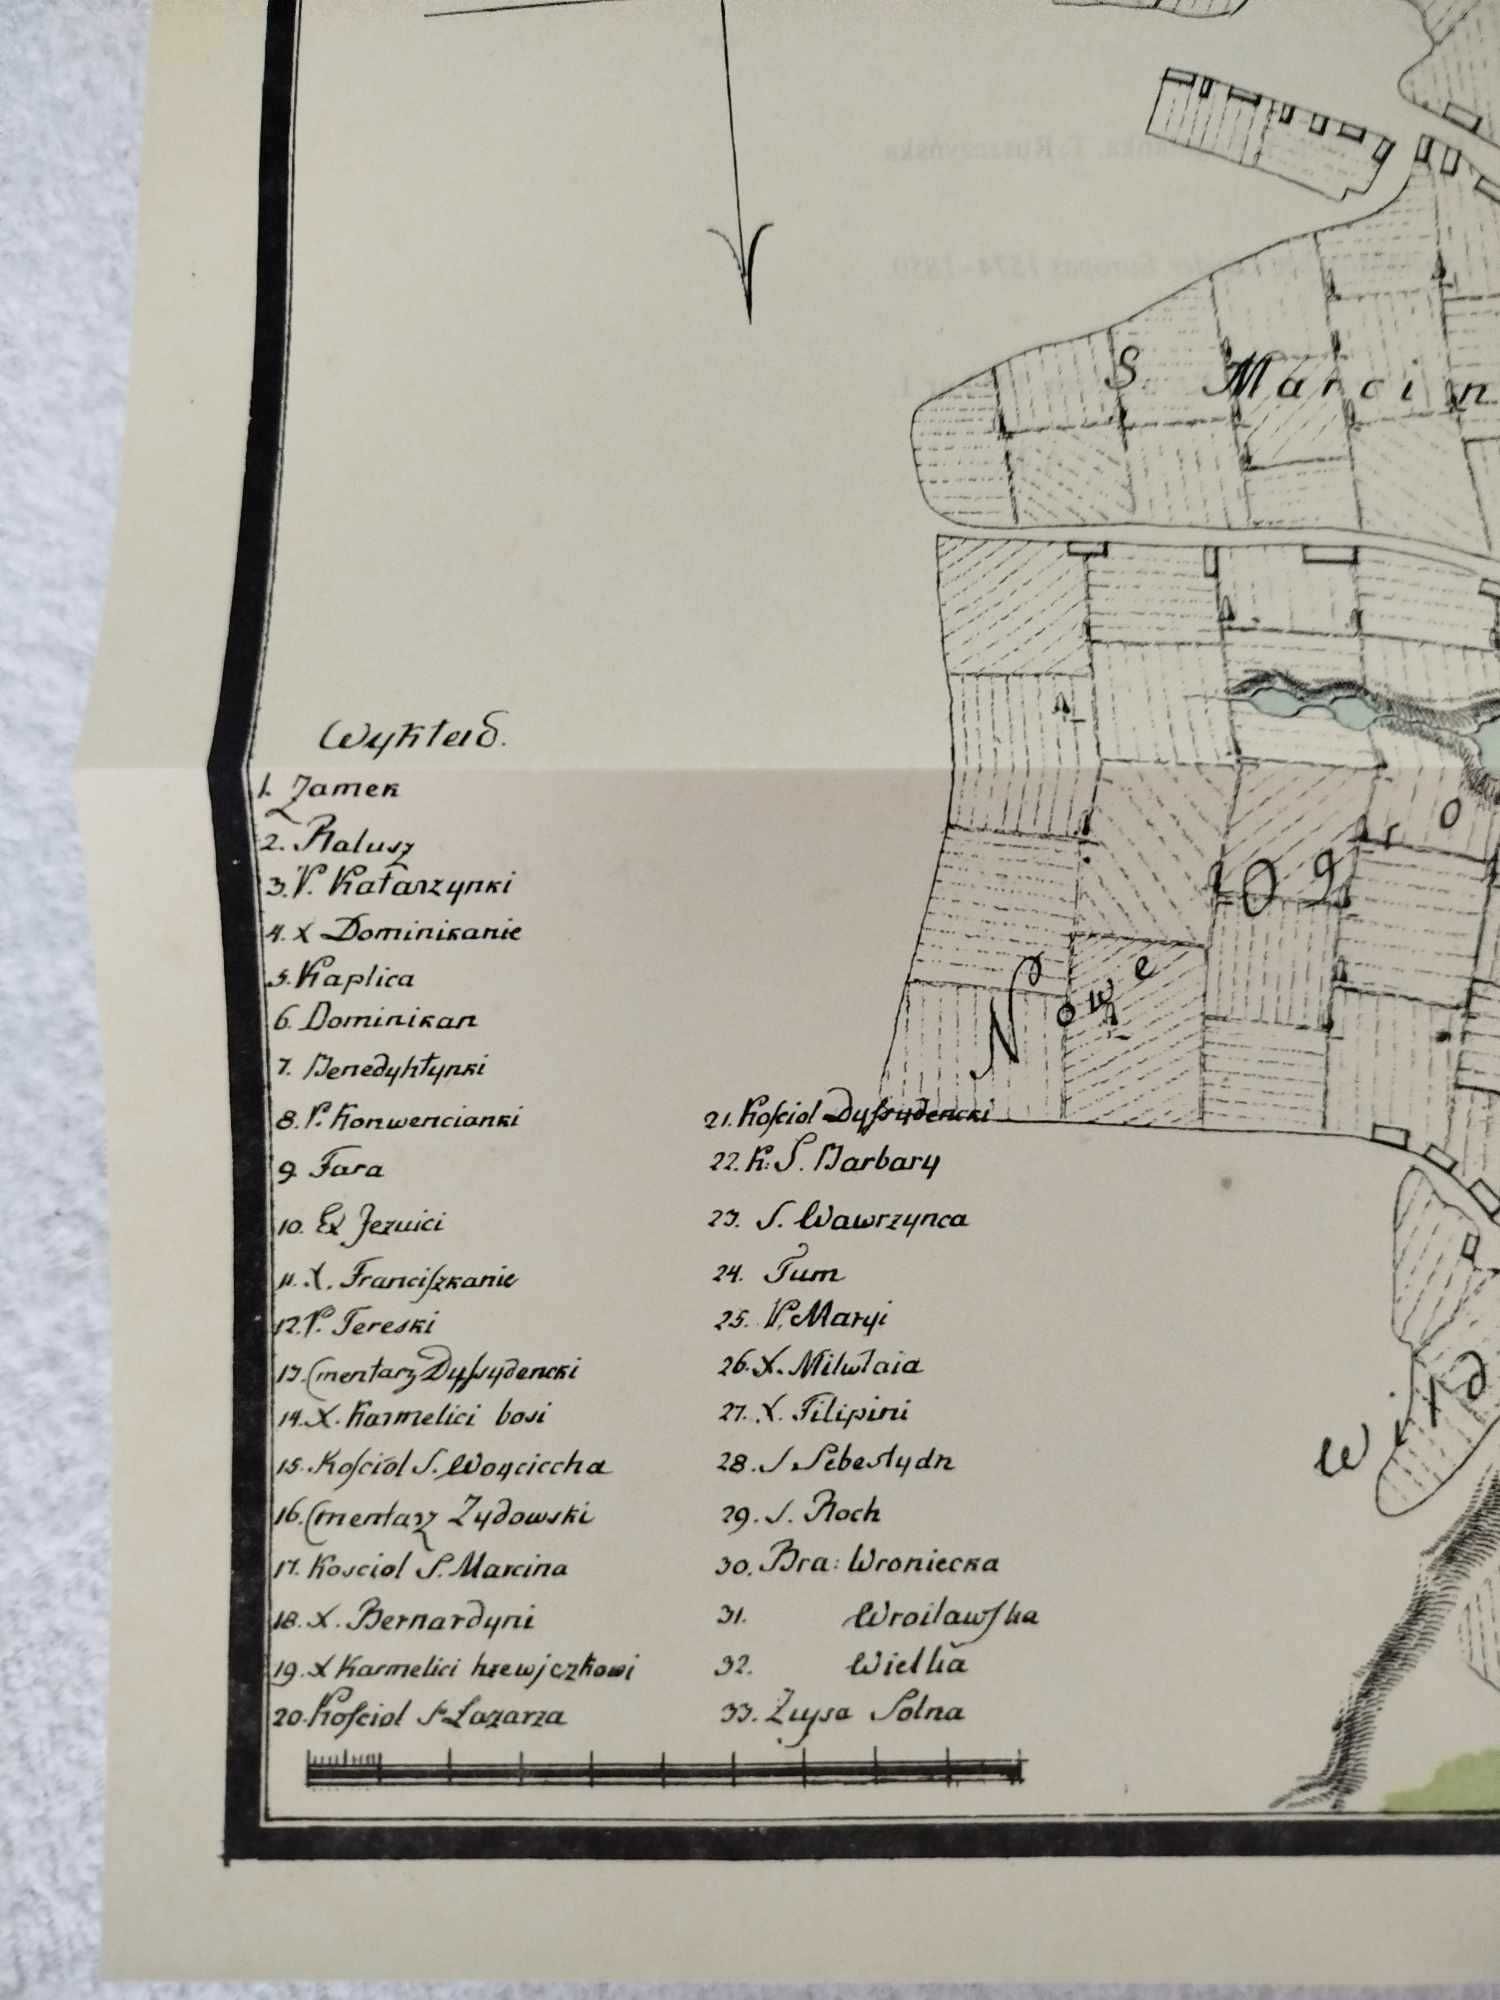 S. Marcin
Nowe Ogro
Wild
Wykład.
1. Zamek
2. Ratusz
3. P. Katarzynki
4. X Dominikanie
5. Kaplica
6. Dominikan
7. Benedyktynki
8. P. Konwencianki
9. Fara
10. Ex Jezuici
11. X. Franciszkanie
12. P. Tereski
13. Cmentarz Dyssydencki
14. X. Karmelici bosi
15. Kościol S. Woyciecha
16. Cmentarz Zydowski
17. Kosciol S. Marcina
18. X. Bernardyni
19. X Karmelici
20. Kościol S Lazarza
21. Kościol Dyssydencki
22. K: S. Barbary
23. S. Wawrzynca
24. Tum
25. P. Maryi
26. X. Mikołaia
27. X. Filipini
28. S Sebestyan
29. S. Roch
30. Bra: Wroniecka
31. Wrocławska
32. Wielka
33. Solna